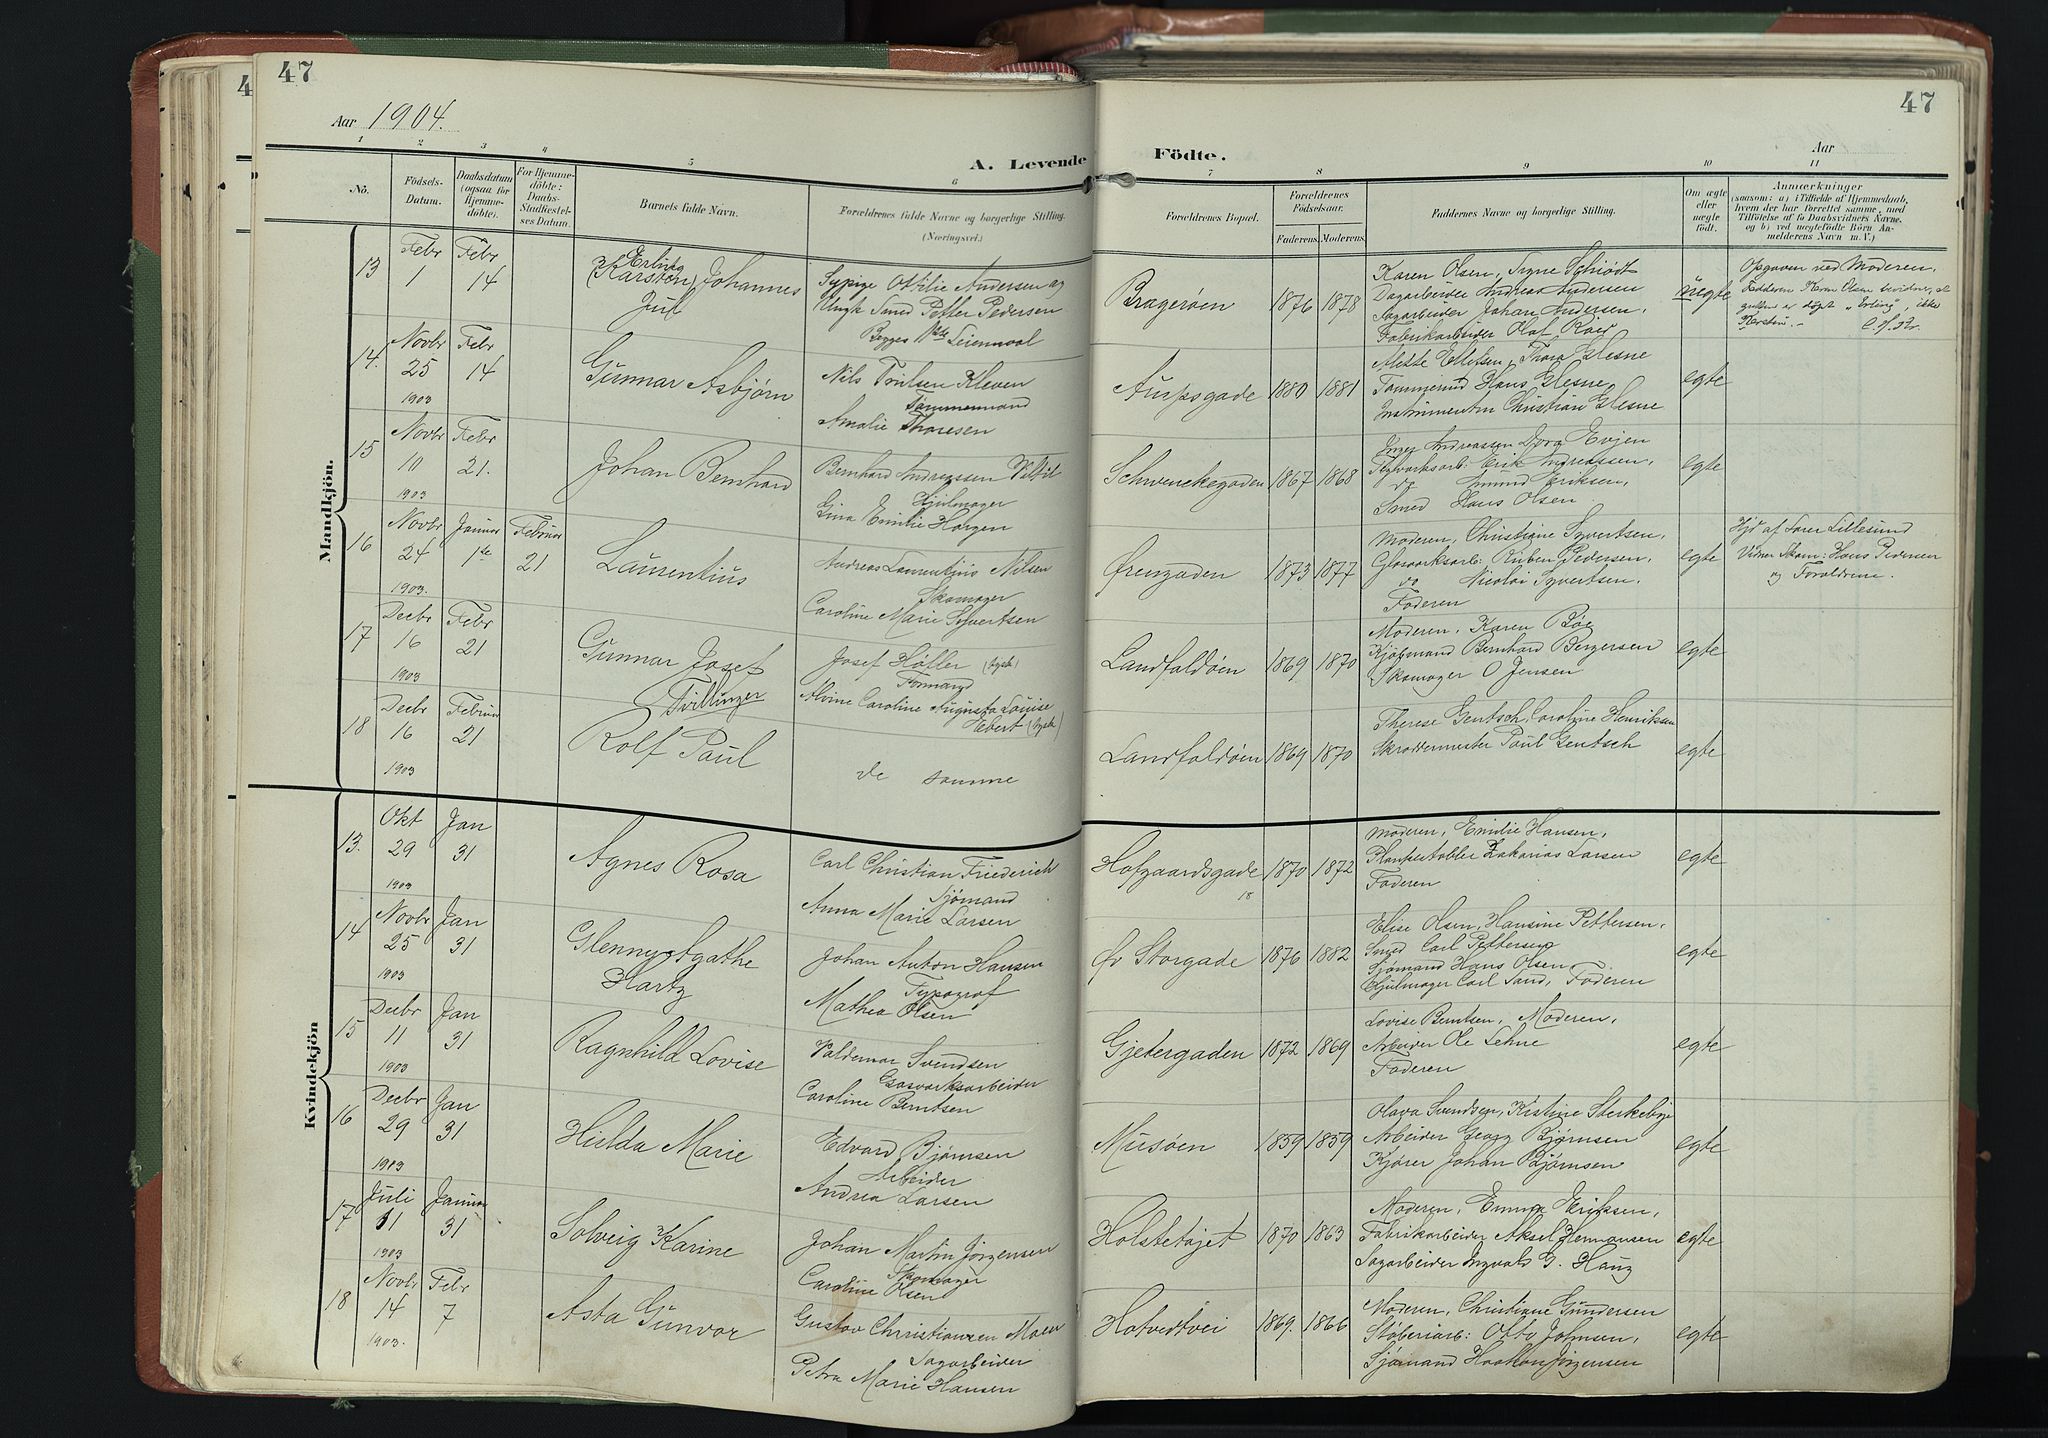 47
47
Aar 1904.
A. Levende Födte.
Aar
1 2 3 4 5 6 7 8 9 10 11
Nò.
Födsels-Datum.
Daabsdatum (ogsaa för Hjemmedöbte).
For Hjemmedöbte: Daabs-Stadfæstelses Datum.
Barnets fulde Navn.
Forældrenes fulde Navne og borgerlige Stilling.
(Næringsvei.)
Forældrenes Bopæl.
Forældrenes Födselsaar.
Faderens. Moderens.
Faddernes Navne og borgerlige Stilling.
Om ægte eller uægte födt.
Anmærkninger
(saasom: a) i Tilfælde af Hjemmedaab, hvem der har forrettet samme, med Tilföielse af to Daabsvidners Navne, og b) ved uægtefödte Börn Anmelderens Navn m. V.)
Mandkjön.
13 Febr 1 Febr 14
Erling
(Karsten) Johannes
Juel
Sypige Othilie Andersen og
Ungk Smed Petter Pedersen
Begges
Bragerøen 1876 1878
Karen Olsen, Signe Schiødt
Dagarbeider Andreas Andersen
Sagarbeider Johan Andersen,
Fabrikarbeider Olaf
uægte
Opgaven ved Moderen.
Fadderen Karen Olsen
gutten er døpt "Erling", ikke
Karsten.
14. Novbr 25 1903 Febr 14
Gunnar Asbjørn
Nils Kleven
Tømmermand
Amalie Thoresen
Aurpsgade 1880 1881
Mette Ellefsen, Thora Elesne
Tømmermd Hans Elesne
Instrumentm Christian Elesne
egte
15 Novbr 10 1903 Febr 21.
Johan Bernhard
Bernhard Andreassen
Hjulmager
Gina Emilie Horgen
Schwenckegaden 1867 1868
Inger Andreassen Dora Evjen
Teglværksarb: Erik Andreassen,
do Amund Eriksen,
Smed Hans Olsen
egte
16 Novbr 24 1903. Januar 1ste Februar 21
Laurentius
Andreas Laurentius Nilsen
Skomager
Caroline Marie Syvertsen
Ørengaden 1873 1877
Moderen, Christiane Syvertsen,
Glasværksarb: Ruben Pedersen,
do Nicolai Syvertsen.
Faderen
egte
Hjd af Lærer Lillesund
Vidner Skom: Hans Pedersen
og Forældrene.
17 Decbr 16 1903 Febr 21
Gunnar Josef
Josef Höfler (tysk)
Formand
Alvine Caroline Augusta Louise
Ebert (tysk)
Landfaldøen 1869 1870
Moderen, Karen Bøe
Kjøbmand Bernhard Bergersen
Skomager O Jensen
egte
Tvillinger
18 Decbr 16 1903 Februar 21
Rolf Paul
de samme
Landfaldøen 1869 1870
Therese Gentsch, Caroline Henriksen
Skræddermester Paul Gentsch
egte
Kvindekjön
13. Okt 29 1903 Jan 31
Agnes Rosa
Carl Christian Friederich
Sjømand
Anna Marie Larsen
Hofgaardsgade 18 1870 1872
Moderen, Emilie Hansen,
Zakarias Larsen
Faderen
egte
14 Novbr 25 1903 Jan 31
Glenny Agathe
Hartz
Johan Anton Hansen
Typograf
Mathea Olsen
Øv Storgade 1876 1882
Elise Olsen, Hansine Pettersen.
Smed Carl Pettersen
Sjømand Hans Olsen
Hjulmager Carl Sand, Faderen
egte
15 Decbr 11 1903 Jan 31
Ragnhild Lovise
Valdemar Svendsen
Gasværksarbeider
Caroline Berntsen
Gjetergaden 1872 1869
Lovise Berntsen, Moderen,
Arbeider Ole Lehne
Faderen
egte
16 Decbr 29 1903 Jan 31
Hilda Marie
Edvard Bjørnsen
Arbeider
Andrea Larsen
Musøen 1859 1859
Olava Svendsen, Kistine Sterkebye
Arbeider Georg Bjørnsen
Kjører Johan Bjørnsen
egte
17 Juli 11 1903 Januar 31
Solveig Karine
Johan Martin Jørgensen
Skomager
Caroline Olsen
Holstetøjet 1870 1863
Moderen, Emma Eriksen,
Fabrikarbeider Aksel Hermansen
Sagarbeider Ingvald G. Haug
egte
18 Novbr 14 1903. Febr 7
Asta Gunvor
Gustav Christiansen Moen
Sagarbeider
Petra Marie Hansen
Hotvedtvei 1869. 1866
Moderen, Christiane Gundersen
Støberiarb: Otto Johnsen,
Sjømand Haakon Jørgensen
egte